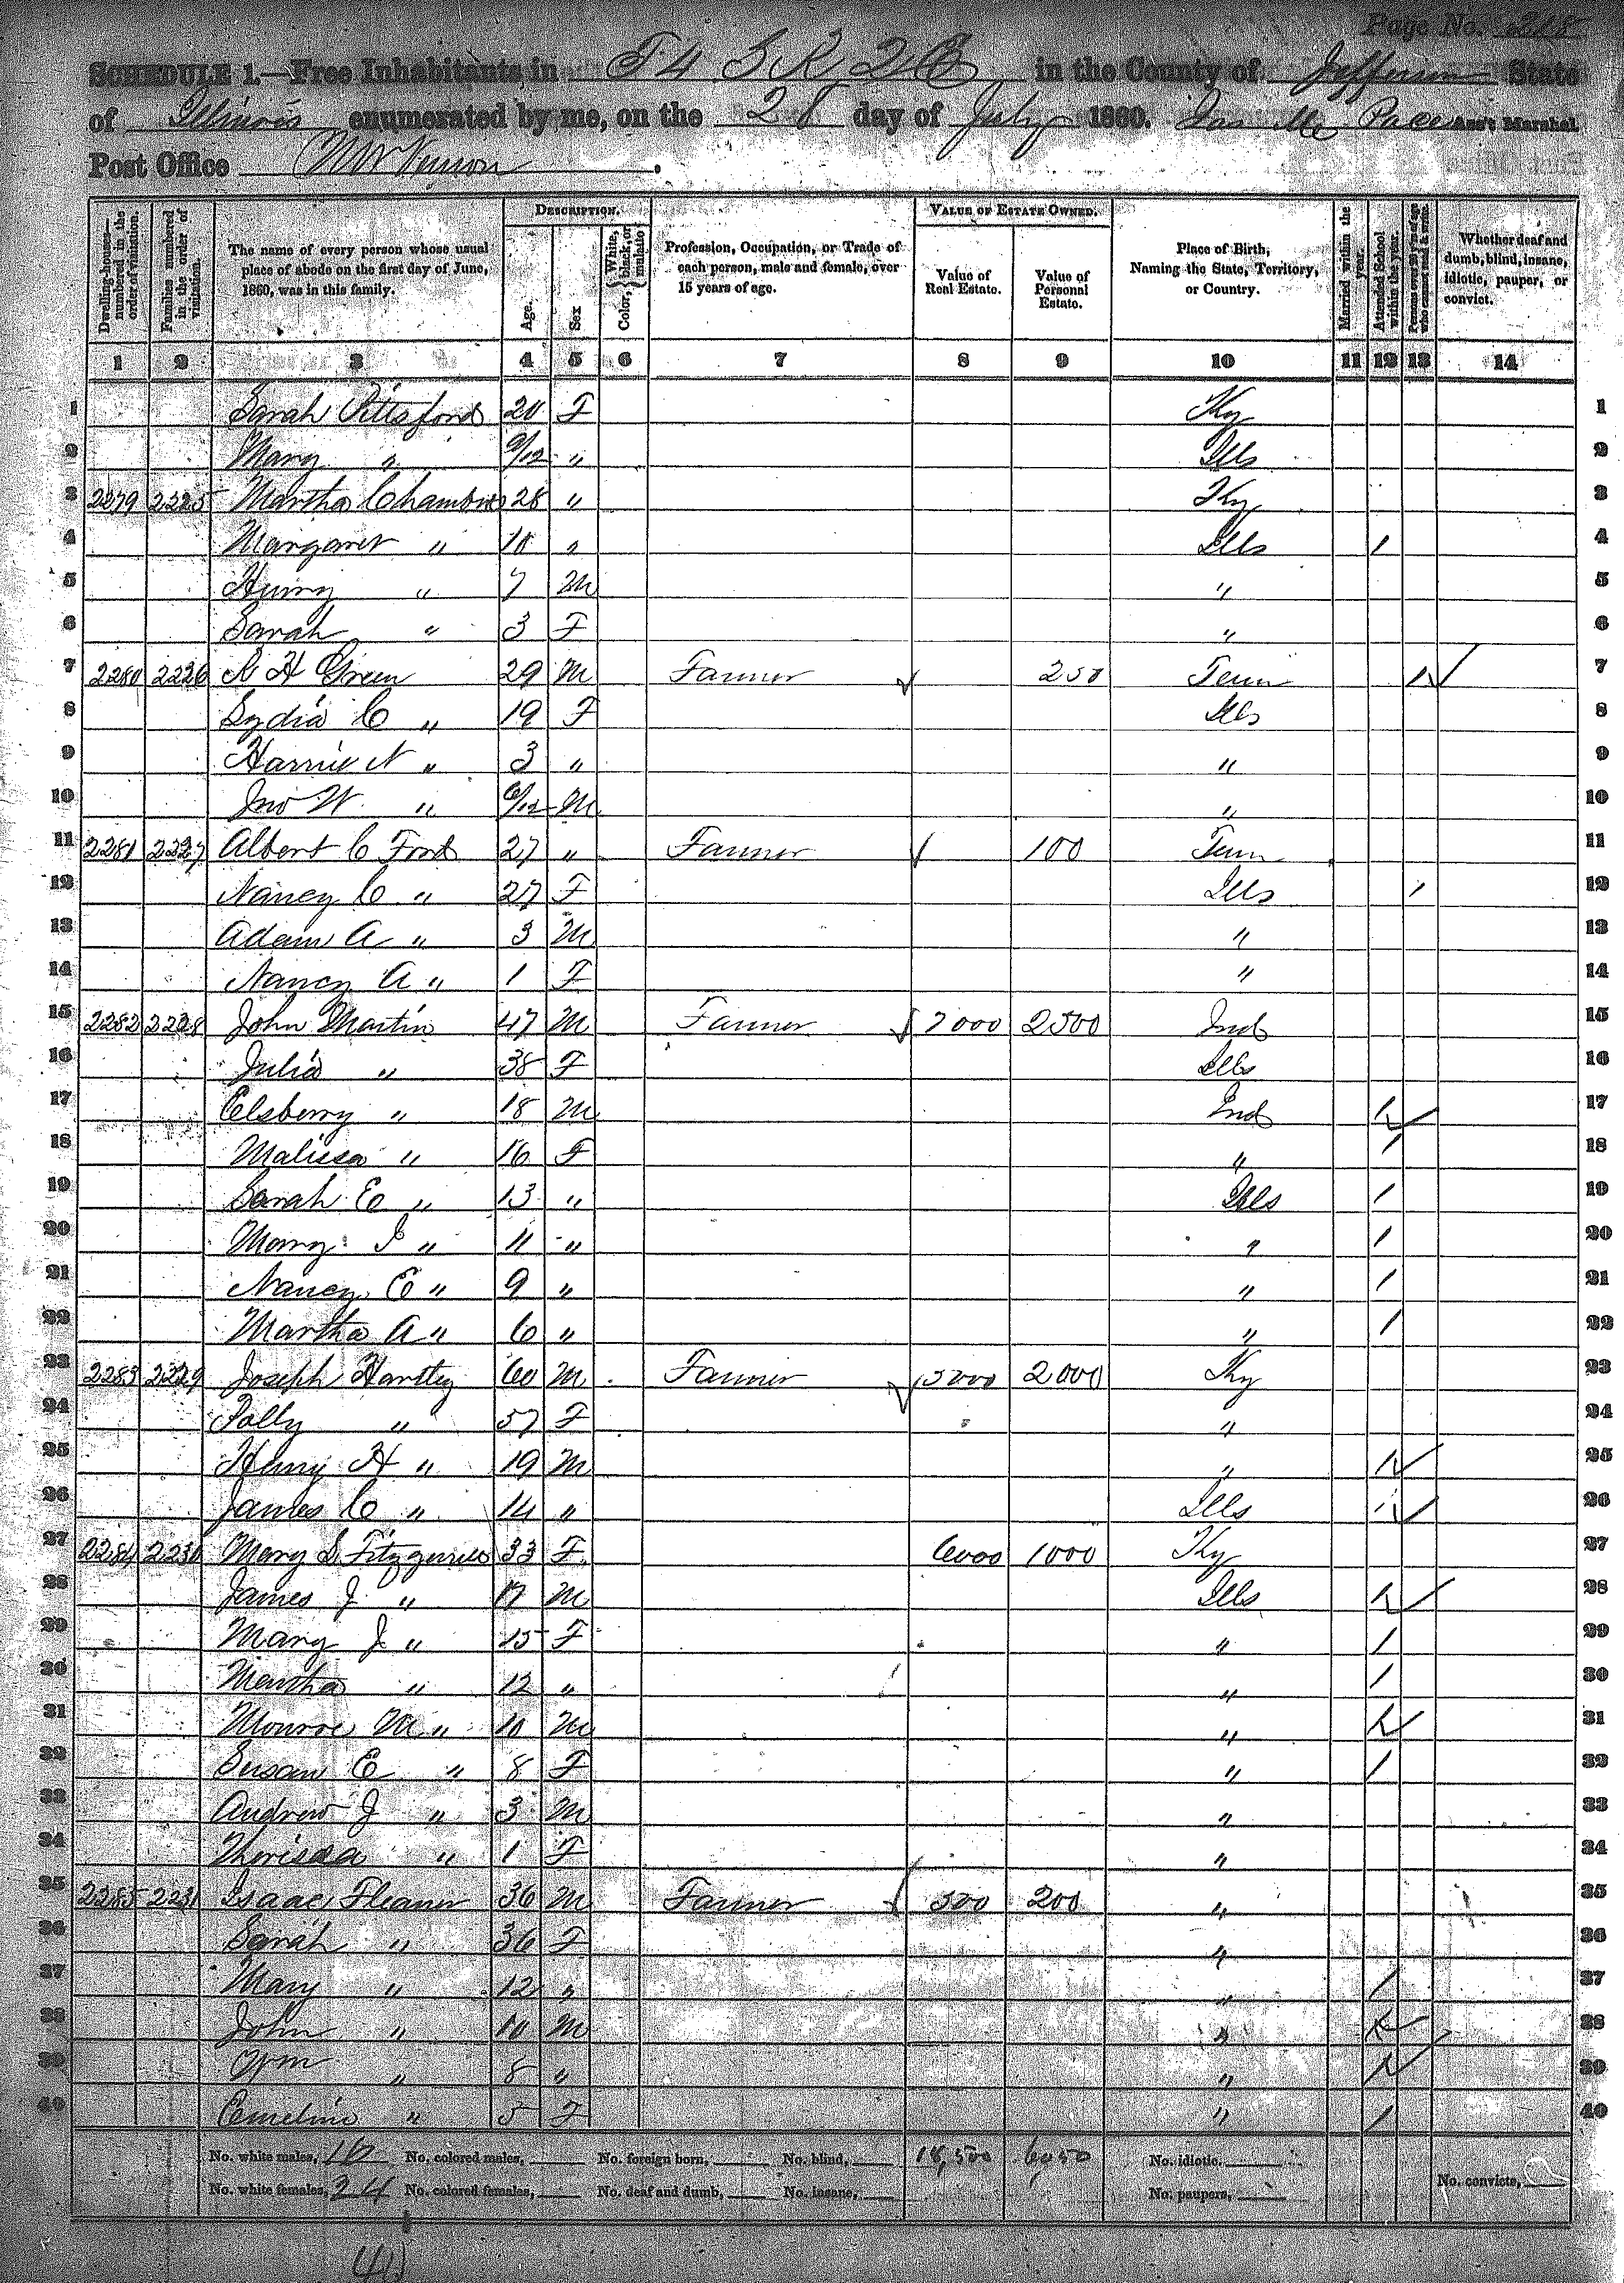 Page No. 318
SCHEDULE 1.—Free Inhabitants in T 4 S R 2 E in the County of Jefferson State
of Illinois enumerated by me, on the 28 day of July 1860. Pace Ass't Marshal
Post Office Mt Vernon.
Dwelling-houses—numbered in the order of visitation.
Families numbered in the order of visitation.
The name of every person whose usual place of abode on the first day of June, 1860, was in this family.
DESCRIPTION.
Age.
Sex
Color, White, black, or mulatto
Profession, Occupation, or Trade of each person, male and female, over 15 years of age.
VALUE OF ESTATE OWNED.
Value of Real Estate.
Value of Personal Estate.
Place of Birth, Naming the State, Territory, or Country.
Married within the year.
Attended School within the year.
Persons over 20 y'rs of age who cannot read & write.
Whether deaf and dumb, blind, insane, idiotic, pauper, or convict.
1 2 3 4 5 6 7 8 9 10 11 12 13 14
1 Sarah Pittsford 20 F Ky 1
2 Mary " 9/12 " Ills 2
3 2279 2225 Martha Chambers 28 " Ky 3
4 Margaret " 10 " Ills / 4
5 " 7 M " 5
6 Sarah " 3 F " 6
7 2280 2226 H Green 29 M Farmer 250 Tenn / 7
8 Lydia C " 19 F Ills 8
9 Harrie N " 3 " " 9
10 Jno W " 6/12 M " 10
11 2281 2227 Albert C Ford 27 " Farmer 100 Tenn 11
12 Nancy C " 27 F Ills / 12
13 Adam A " 3 M " 13
14 Nancy A " 1 F " 14
15 2282 2228 John Martin 47 M Farmer 7000 2500 Ind 15
16 Julia " 38 F Ills 16
17 Elsberry " 18 M Ind / 17
18 Malissa " 16 F " / 18
19 Sarah E " 13 " Ills / 19
20 Mary J " 11 " " / 20
21 Nancy E " 9 " " / 21
22 Martha A " 6 " " / 22
23 2283 2229 Joseph Hartley 60 M Farmer 5000 2000 Ky 23
24 Polly " 57 F " 24
25 Henry H " 19 M " / 25
26 James C " 14 " Ills / 26
27 2284 2230 Mary S Fitzgerrell 33 F 6000 1000 Ky 27
28 James J " 17 M Ills / 28
29 Mary J " 15 F " / 29
30 Martha " 12 " " / 30
31 Monroe M " 10 M " / 31
32 Susan E " 8 F " / 32
33 Andrew J " 3 M " 33
34 " 1 F " 34
35 2285 2231 Isaac Fleanor 36 M Farmer 500 200 " 35
36 Sarah " 36 F " 36
37 Mary " 12 " " / 37
38 John " 10 M " / 38
39 Wm " 8 " " / 39
40 Emeline " 5 F " / 40
No. white males, 16 No. colored males, No. foreign born, No. blind, 18,500 6050 No. idiotic.
No. white females, 24 No. colored females, No. deaf and dumb, No. insane, No. paupers, No. convicts,
40